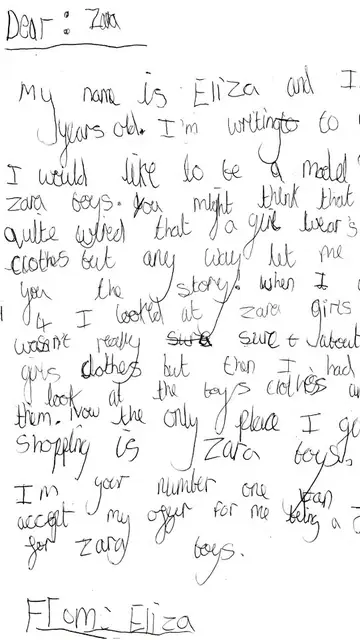 Dear: Zara
My name is Eliza and I
years old. I'm writing to
I would like to be a model
Zara boys. You might think that
quite wired that a girl wear's
clothes but any way let me
you the story! when I
4 I looked at zara girls
wasn't really sure about
girls clothes but then I had
look at the boys clothes
them. Now the only place I go
Shopping is Zara boys.
I'm your number one fan
accept my offer for me being a
for Zara boys.
From: Eliza